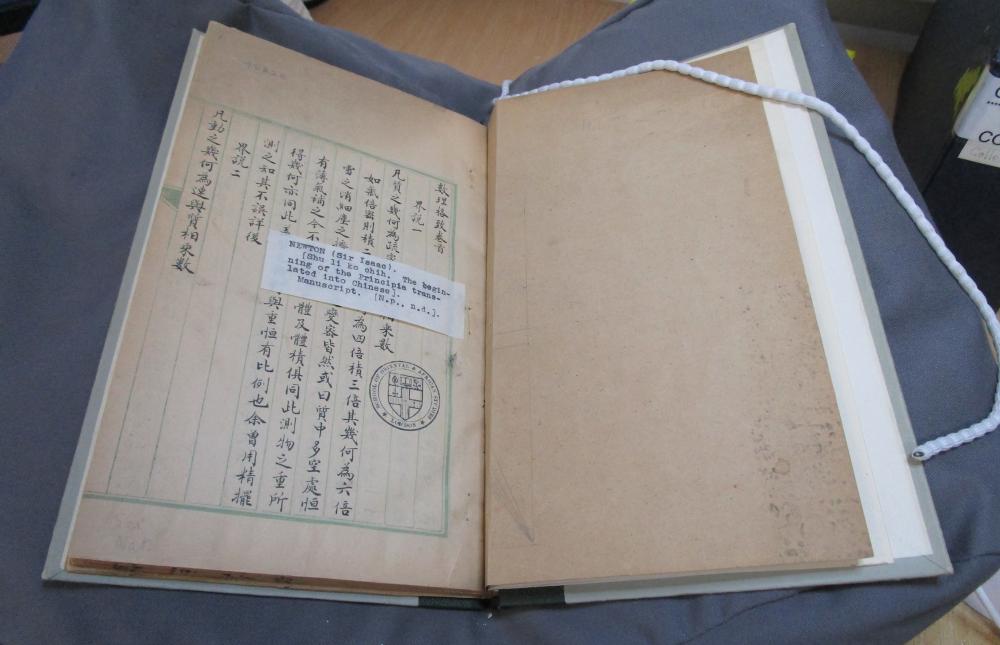 數理格致卷首
界說一
凡質之幾何為疏 相乘數
如氣倍密則積二 為四倍積三倍其幾何為六倍
雪之消細塵之 變容皆然或曰質中多空處恒
有薄氣補之今不 體及體積俱同此測物之重所
得幾何亦同此 與重恒有比例也余曾用精擺
測之知其不誤詳後
界說二
凡動之幾何為速與質相乘數
NEWTON (Sir Isaac).
[Shu li ko chih. The begin-
ning of the Principia trans-
lated into Chinese].
Manuscript. [N.p., n.d.].
SCHOOL OF ORIENTAL & AFRICAN STUDIES
LONDON
CO